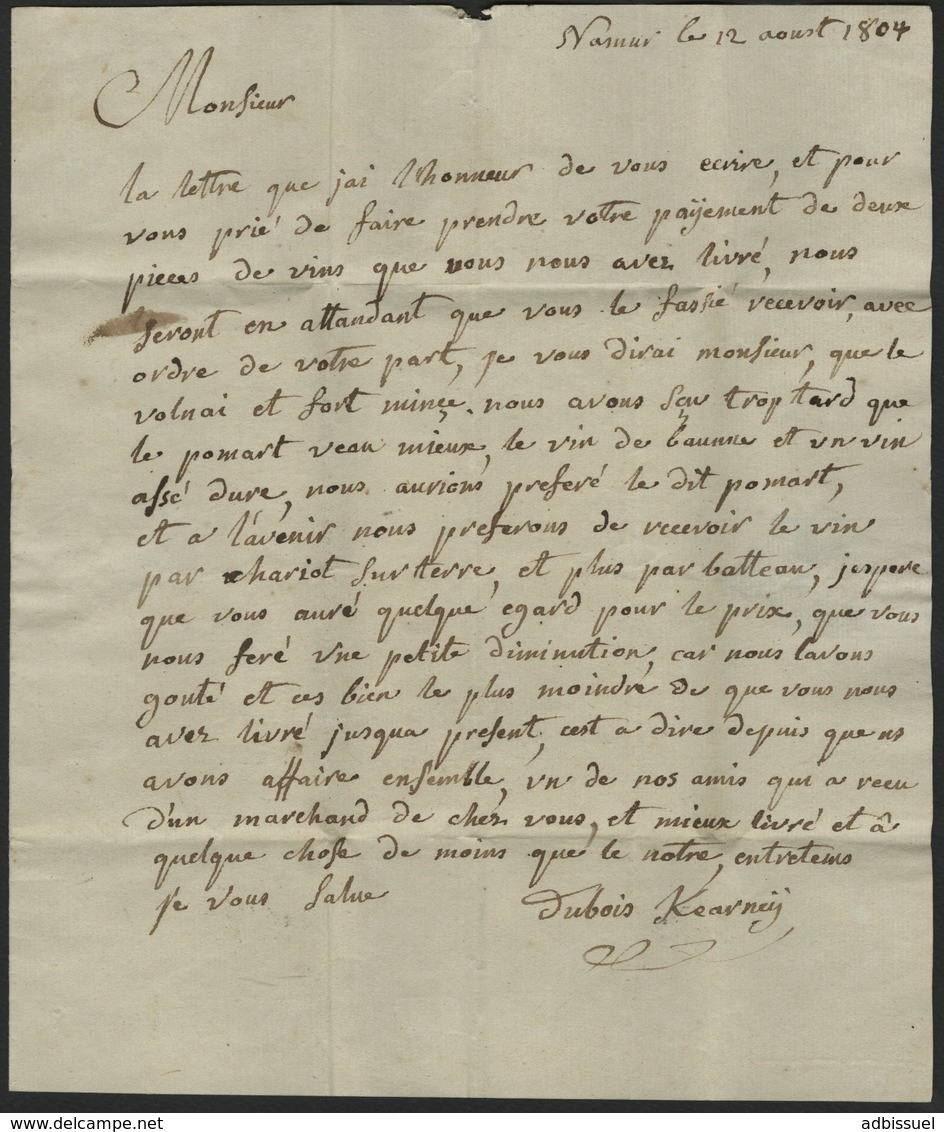 Namur le 12 aoust 1804
Monsieur
la lettre que jai lhonneur de vous ecrire, et pour
vous prié de faire prendre votre païjement de deux
pieces de vins que vous nous avez livré, nous
seront en attandant que vous le fassié recevoir, avec
ordre de votre part, je vous dirai monsieur, que le
volnai et fort minçe. nous avons sçu trop tard que
le pomart veau mieux, le vin de baunne et un vin
assé dure, nous aurions preferé le dit pomart,
et a l'avenir nous preferons de recevoir le vin
par chariot sur terre, et plus par batteau, jespere
que vous auré quelque egard pour le prix, que vous
nous feré une petite diminution, car nous lavons
gouté et ces bien le plus moindre de que vous nous
avez livré jusqua present, cest a dire depuis que ns
avons affaire ensemble, un de nos amis qui a recu
d'un marchand de chéz vous, et mieux livré et â
quelque chose de moins que le notre, entretems
je vous salue
Dubois Kearneÿ
adbissuel